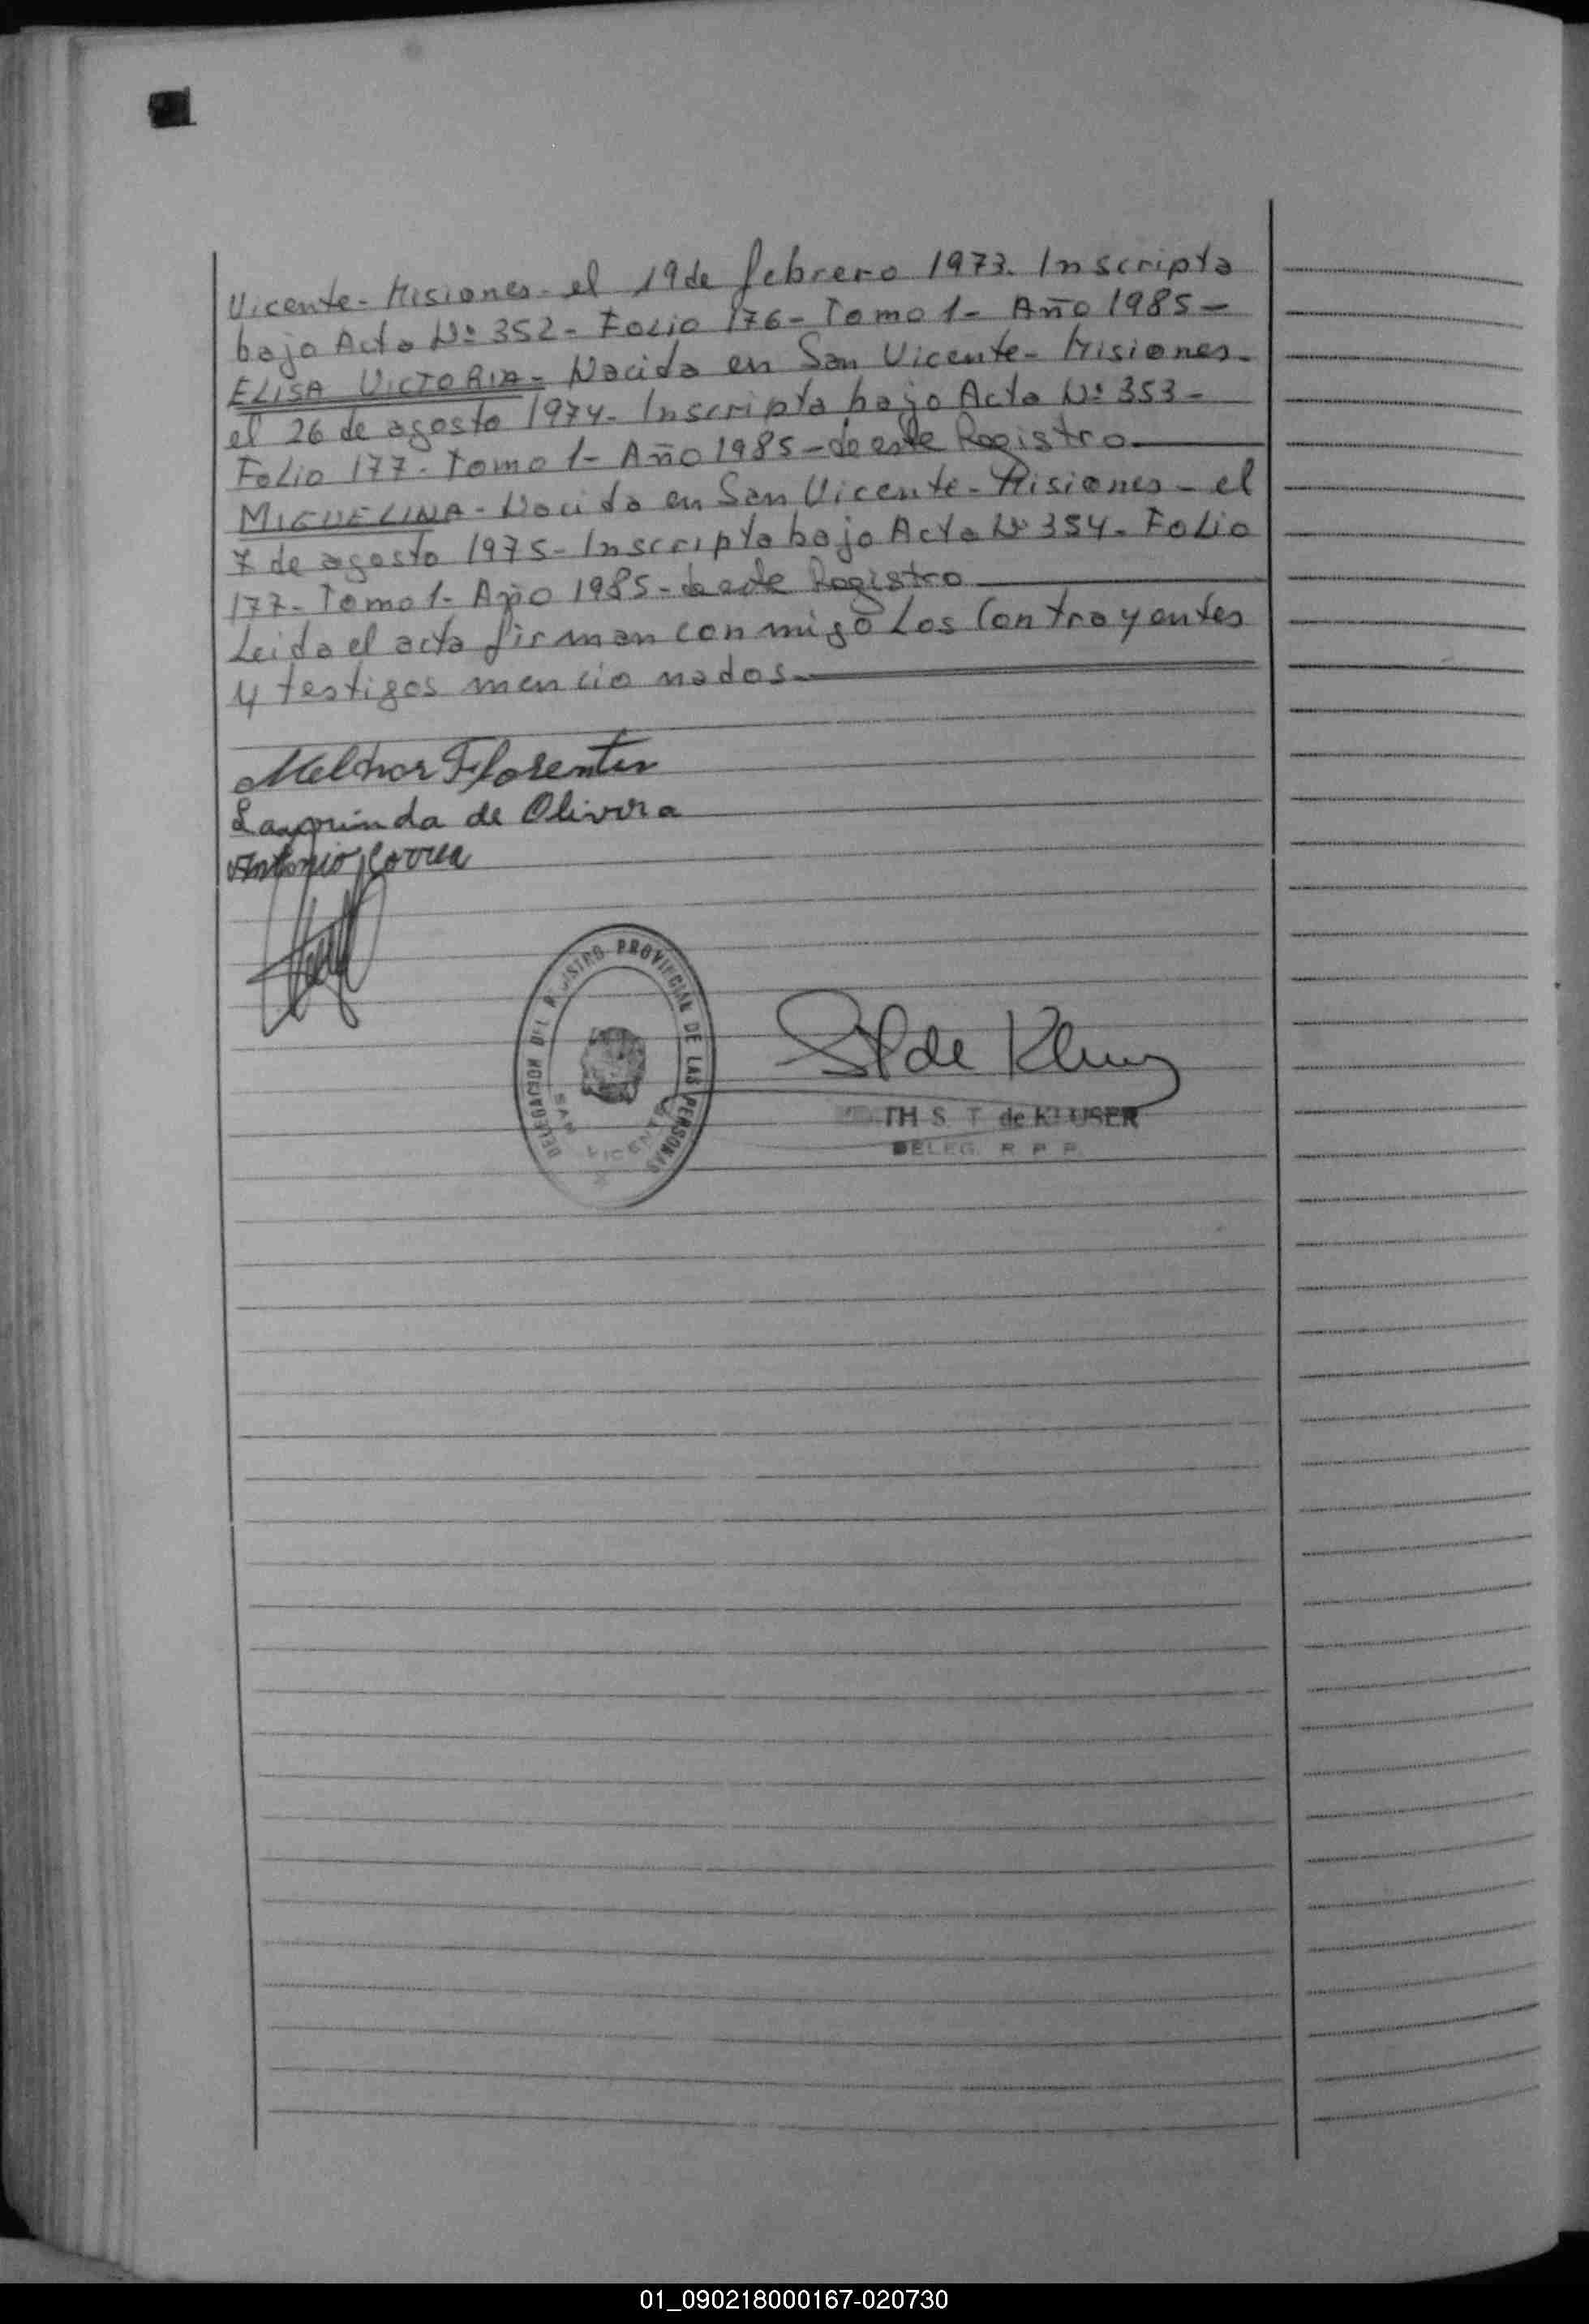 Vicente- Misiones- el 19 de febrero 1973. Inscripta
bajo Acta Nº 352- Folio 176- Tomo 1- Año 1985-
ELISA VICTORIA- Nacida en San Vicente- Misiones-
el 26 de agosto 1974- Inscripta bajo Acta Nº 353-
Folio 177- Tomo 1- Año 1985- de este Registro
MIGUELINA- Nacida en San Vicente- Misiones- el
7 de agosto 1975- Inscripta bajo Acta Nº 354- Folio
177- Tomo 1- Año 1985- de este Registro
Leida el acta firman conmigo los Contrayentes
y testigos mencionados
Melchor Florentin
Laurinda de Olivira
Antonio Correa
DELEGACION DEL REGISTRO PROVINCIAL DE LAS PERSONAS
SAN VICENTE
de
TH S. T de KLUSER
DELEG. R P P.
01_090218000167-020730